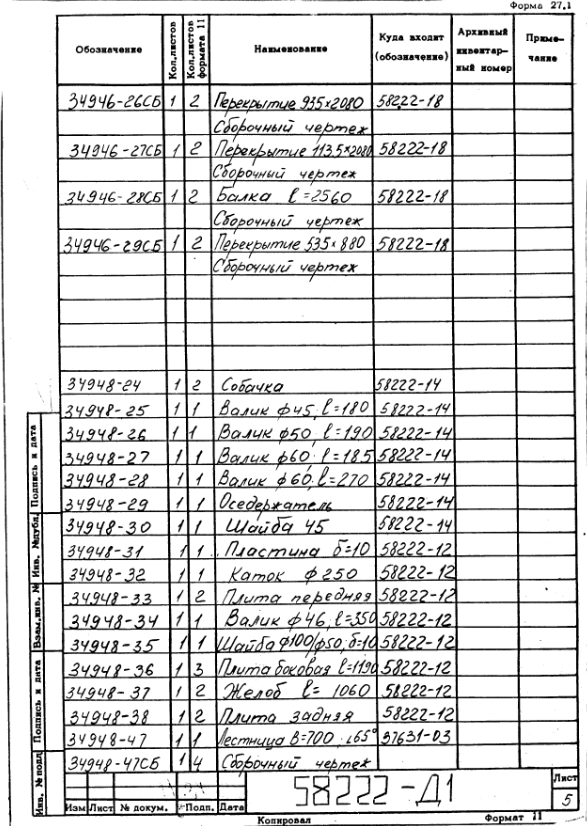 Форма 27.1
Обозначение Кол.листов Кол.листов формата 11 Наименование Куда входит (обозначение) Архивный инвентарный номер Примечание
34946-26СБ 1 2 Перекрытие 935×2080 58222-18
Сборочный чертеж
34946-27СБ 1 2 Перекрытие 113.5×2080 58222-18
Сборочный чертеж
34946-28СБ 1 2 Балка ℓ=2560 58222-18
Сборочный чертеж
34946-29СБ 1 2 Перекрытие 535×880 58222-18
Сборочный чертеж
34948-24 1 2 Собачка 58222-14
34948-25 1 1 Валик ф45, ℓ=180 58222-14
34948-26 1 1 Валик ф50, ℓ=190 58222-14
34948-27 1 1 Валик ф60 ℓ=185 58222-14
34948-28 1 1 Валик ф60, ℓ=270 58222-14
34948-29 1 1 Оседержатель 58222-14
34948-30 1 1 Шайба 45 58222-14
34948-31 1 1 Пластина δ=10 58222-12
34948-32 1 1 Каток ф250 58222-12
34948-33 1 2 Плита передняя 58222-12
34948-34 1 1 Валик ф46, ℓ=350 58222-12
34948-35 1 1 Шайба ф100/ф50, δ=10 58222-12
34948-36 1 3 Плита боковая ℓ=1190 58222-12
34948-37 1 2 Желоб ℓ=1060 58222-12
34948-38 1 2 Плита задняя 58222-12
34948-47 1 1 Лестница В=700 ∠65° 37631-03
34948-47СБ 1 4 Сборочный чертеж
Инв. № подл. Подпись и дата Взам.инв. № Инв. №дубл. Подпись и дата
Изм Лист № докум. Подп. Дата
58222-Д1
Лист
5
Копировал Формат 11